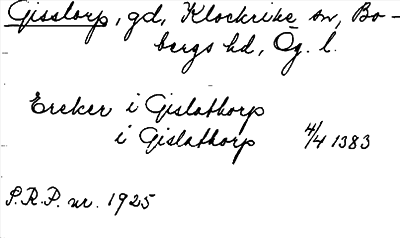 Gisstorp, gd, Klockrike sn, Bo-
bergs hd, Ög. l.
Ereker i Gislathorp
i Gislathorp 4/4 1383
S.R.P. nr. 1925